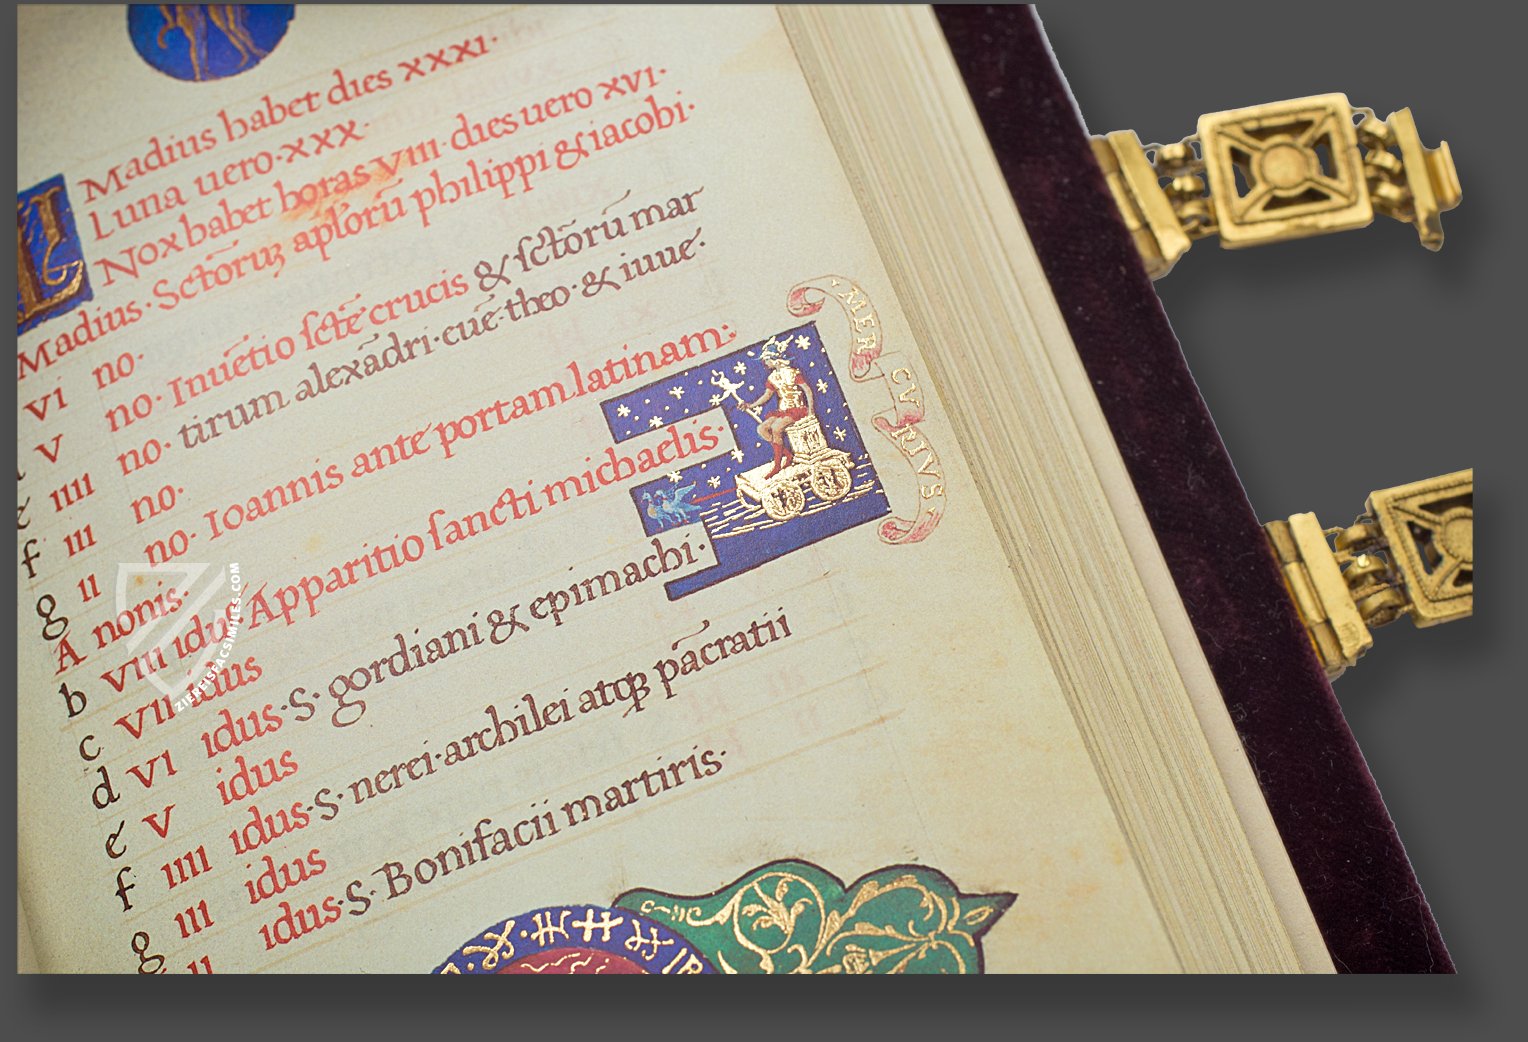 Madius habet dies xxxi·
Luna uero·xxx·
Nox habet horas viii· dies uero xvi·
Madius· Sctōruʒ apl'orū philippi & iacobi·
vi no·
v no· Inuētio sctē crucis & sctōrū mar
e iiii no· tirum alexādri·euē·theo·& iuue·
f iii no·
g ii no· Ioannis ante portam latinam:
A nonis·
b viii idu· Apparitio sancti michaelis·
c vii idus
d vi idus·S· gordiani & epimachi·
e v idus
f iiii idus·S· nerei·archilei atqʒ pācratii
g iii idus
ii idus·S· Bonifacii martiris·
·MER
CV
RIVS·
ZIEREISFACSIMILES.COM